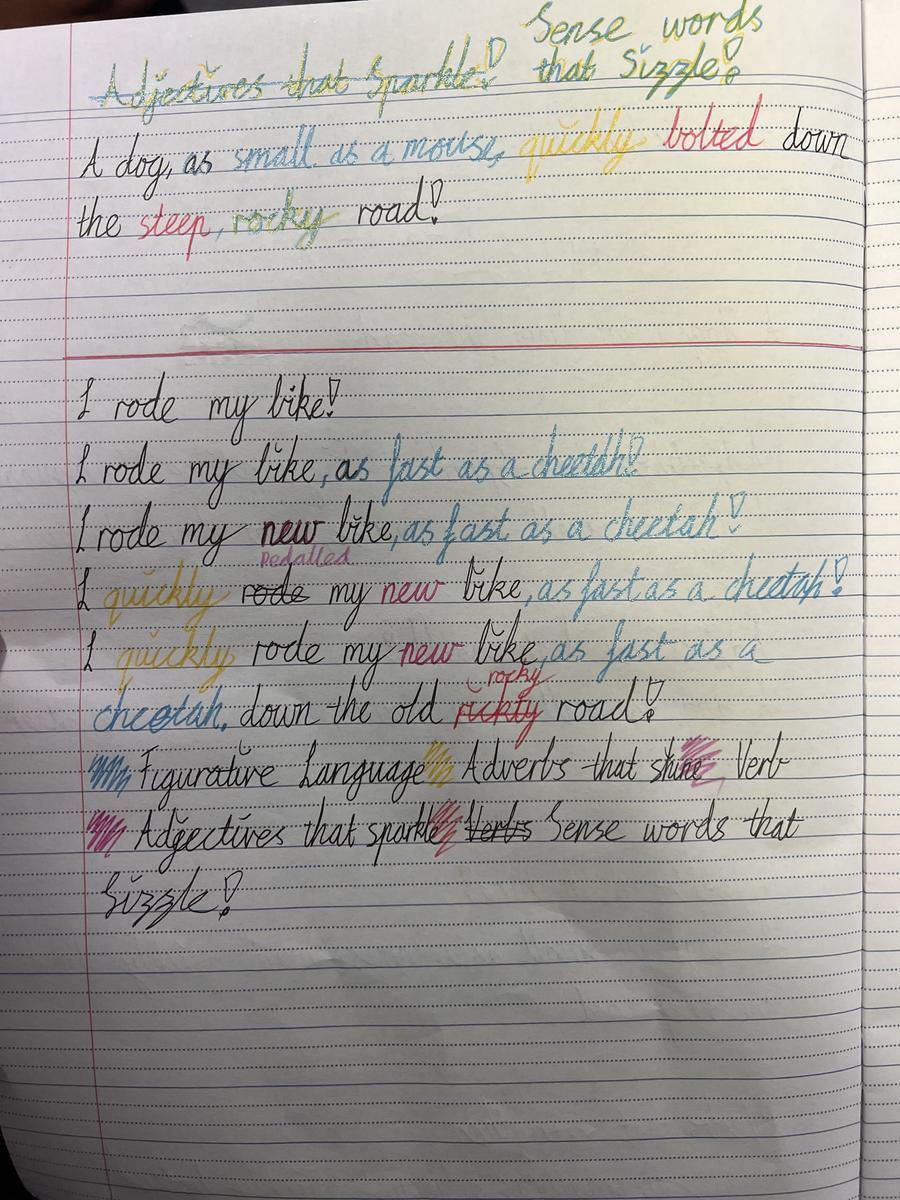 Sense words
Adjectives that Sparkle! that Sizzle!
A dog, as small as a mouse, quickly bolted down
the steep, rocky road!
I rode my bike!
I rode my bike, as fast as a cheetah!
I rode my new bike, as fast as a cheetah!
pedalled
I quickly rode my new bike, as fast as a cheetah!
I quickly rode my new bike, as fast as a
rocky
cheetah, down the old rickity road!
Figurative Language Adverbs that shine Verb
Adjectives that sparkle Verbs Sense words that
Sizzle!